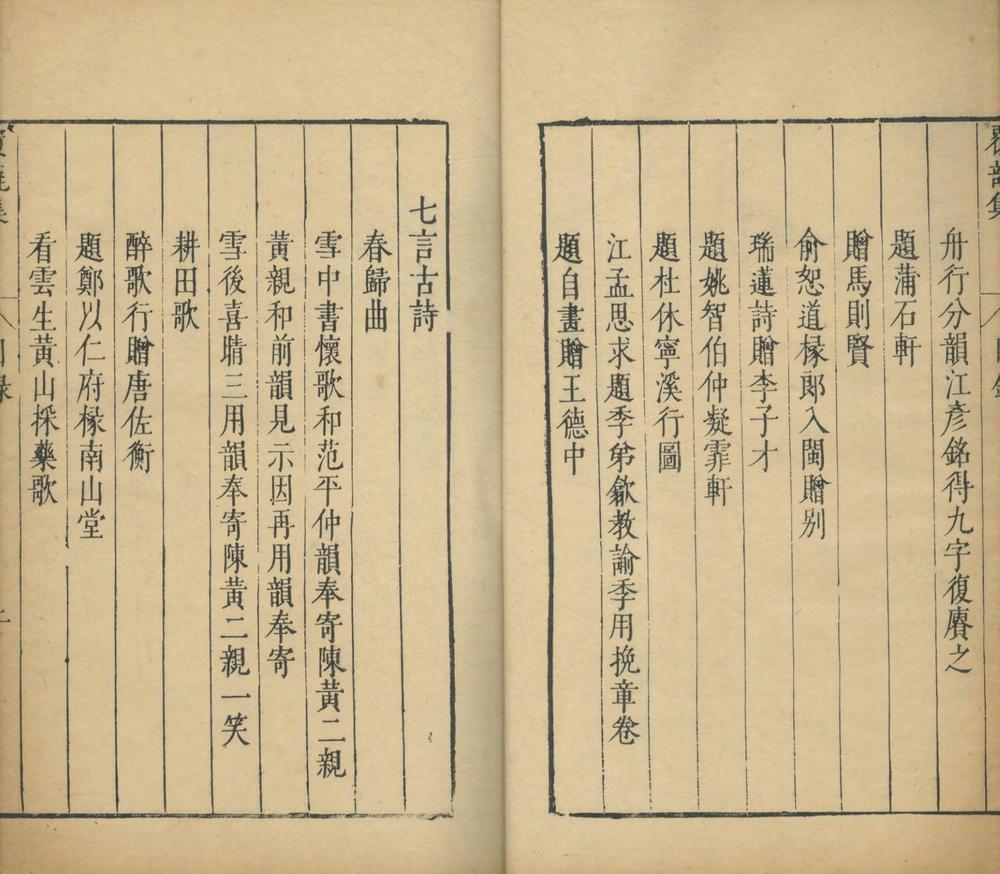 舟行分韻江彥銘得九字復賡之
題蒲石軒
贈馬則賢
俞恕道椽郎入閩贈别
瑞蓮詩贈李子才
題姚智伯仲凝霏軒
題杜休寧溪行圖
江孟思求題季弟歙教諭季用挽章卷
題自畫贈王德中
七言古詩
春歸曲
雪中書懷歌和范平仲韻奉寄陳黃二親
黃親和前韻見示因再用韻奉寄
雪後喜晴三用韻奉寄陳黃二親一笑
耕田歌
醉歌行贈唐佐衡
題鄭以仁府椽南山堂
看雲生黃山採藥歌